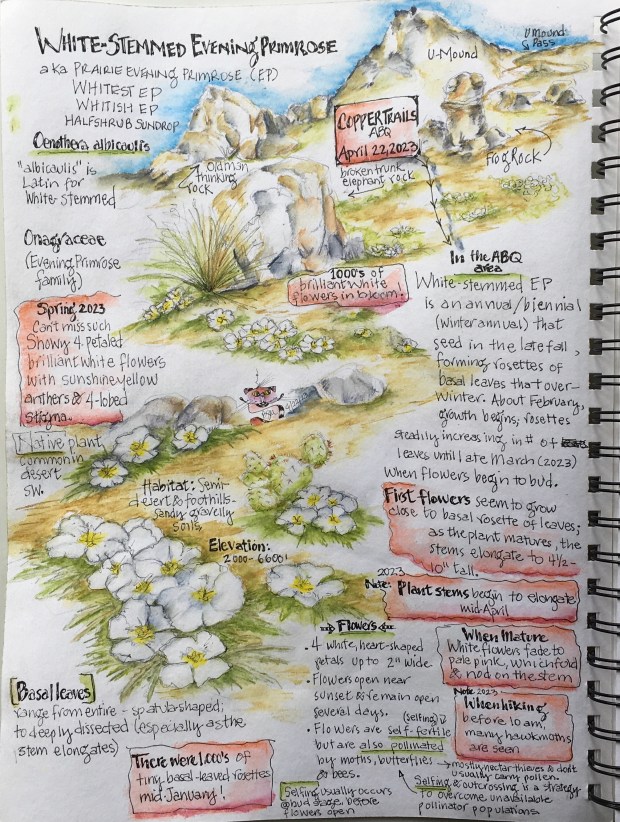 White-Stemmed Evening Primrose
aka Prairie Evening Primrose (EP)
Whitest EP
Whitish EP
Halfshrub Sundrop
Oenothera albicaulis
"albicaulis" is
Latin for
White-stemmed
Onagraceae
(Evening Primrose
family)
U-Mound
U Mound
Pass
Copper Trails
ABQ
April 22, 2023
Old man
thinking
rock
broken trunk
elephant rock
Frog Rock
1000's of
brilliant white
flowers in bloom!
Spring 2023
Can't miss such
Showy 4 petaled
brilliant white flowers
with sunshine yellow
anthers & 4-lobed
stigma.
Native plant,
common in
desert
SW.
Habitat: Semi-
desert & foothills -
sandy, gravelly
soils
Elevation:
2000-6600'
In the ABQ
area
White-stemmed EP
is an annual/biennial
(winter annual) that
seed in the late fall,
forming rosettes of
basal leaves that over-
winter. About February,
growth begins; rosettes
steadily increasing in # of
leaves until late March (2023)
when flowers begin to bud.
First flowers seem to grow
close to basal rosette of leaves;
as the plant matures, the
stems elongate to 4½-
10" tall.
2023
Note: Plant stems begin to elongate
mid-April
Flowers
• 4 white, heart-shaped
petals up to 2" wide.
• Flowers open near
sunset & remain open
several days. (selfing)
• Flowers are self-fertile
but are also pollinated
by moths, butterflies
& bees.
When Mature
White flowers fade to
pale pink, which fold
& nod on the stem
Note 2023
When hiking
before 10am,
many hawkmoths
are seen
mostly nectar thieves & don't
usually carry pollen.
Selfing & outcrossing is a strategy
to overcome unavailable
pollinator populations
Selfing usually occurs
@ bud stage, before
flowers open
Basal leaves
range from entire - spatula-shaped;
to deeply dissected (especially as the
stem elongates)
There were 1,000's of
tiny basal-leaved rosettes
mid-January!